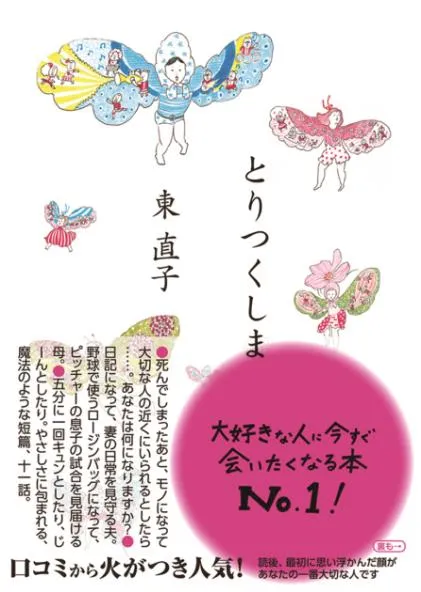 とりつくしま
東 直子
●死んでしまったあと、モノになって
大切な人の近くにいられるとしたら
……。あなたは何になりますか?●
日記になって、妻の日常を見守る夫。
野球で使うロージンバッグになって、
ピッチャーの息子の試合を見届ける
母。●五分に一回キュンとしたり、じ
ーんとしたり。やさしさに包まれる、
魔法のような短篇、十一話。
大好きな人に今すぐ
会いたくなる本
No.1!
裏も→
口コミから火がつき人気!
読後、最初に思い浮かんだ顔が
あなたの一番大切な人です